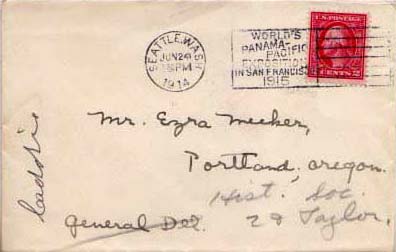 SEATTLE, WASH
JUN 24
PM
1914
WORLD'S
PANAMA-
PACIFIC
EXPOSITION
IN SAN FRANCISCO
1915
U.S. POSTAGE
CENTS 2
Mr. Ezra Meeker,
Portland, Oregon.
Hist. Soc.
General Del.
2d Taylor.